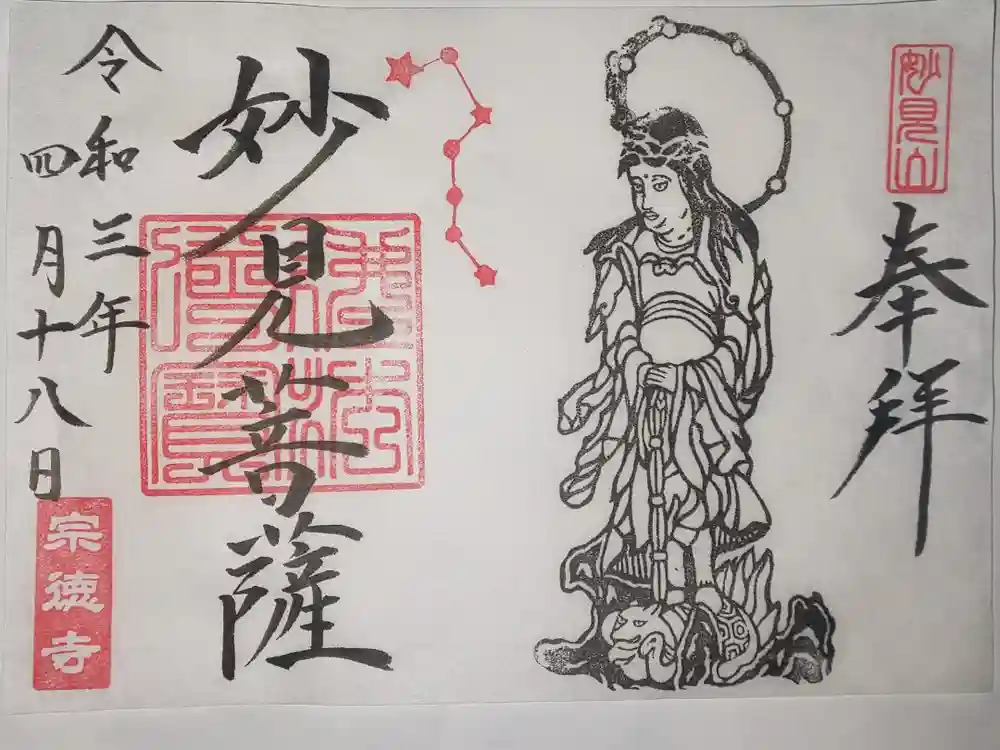 妙見山
奉拝
妙見菩薩
佛法僧寶
令和三年
四月十八日
宗徳寺